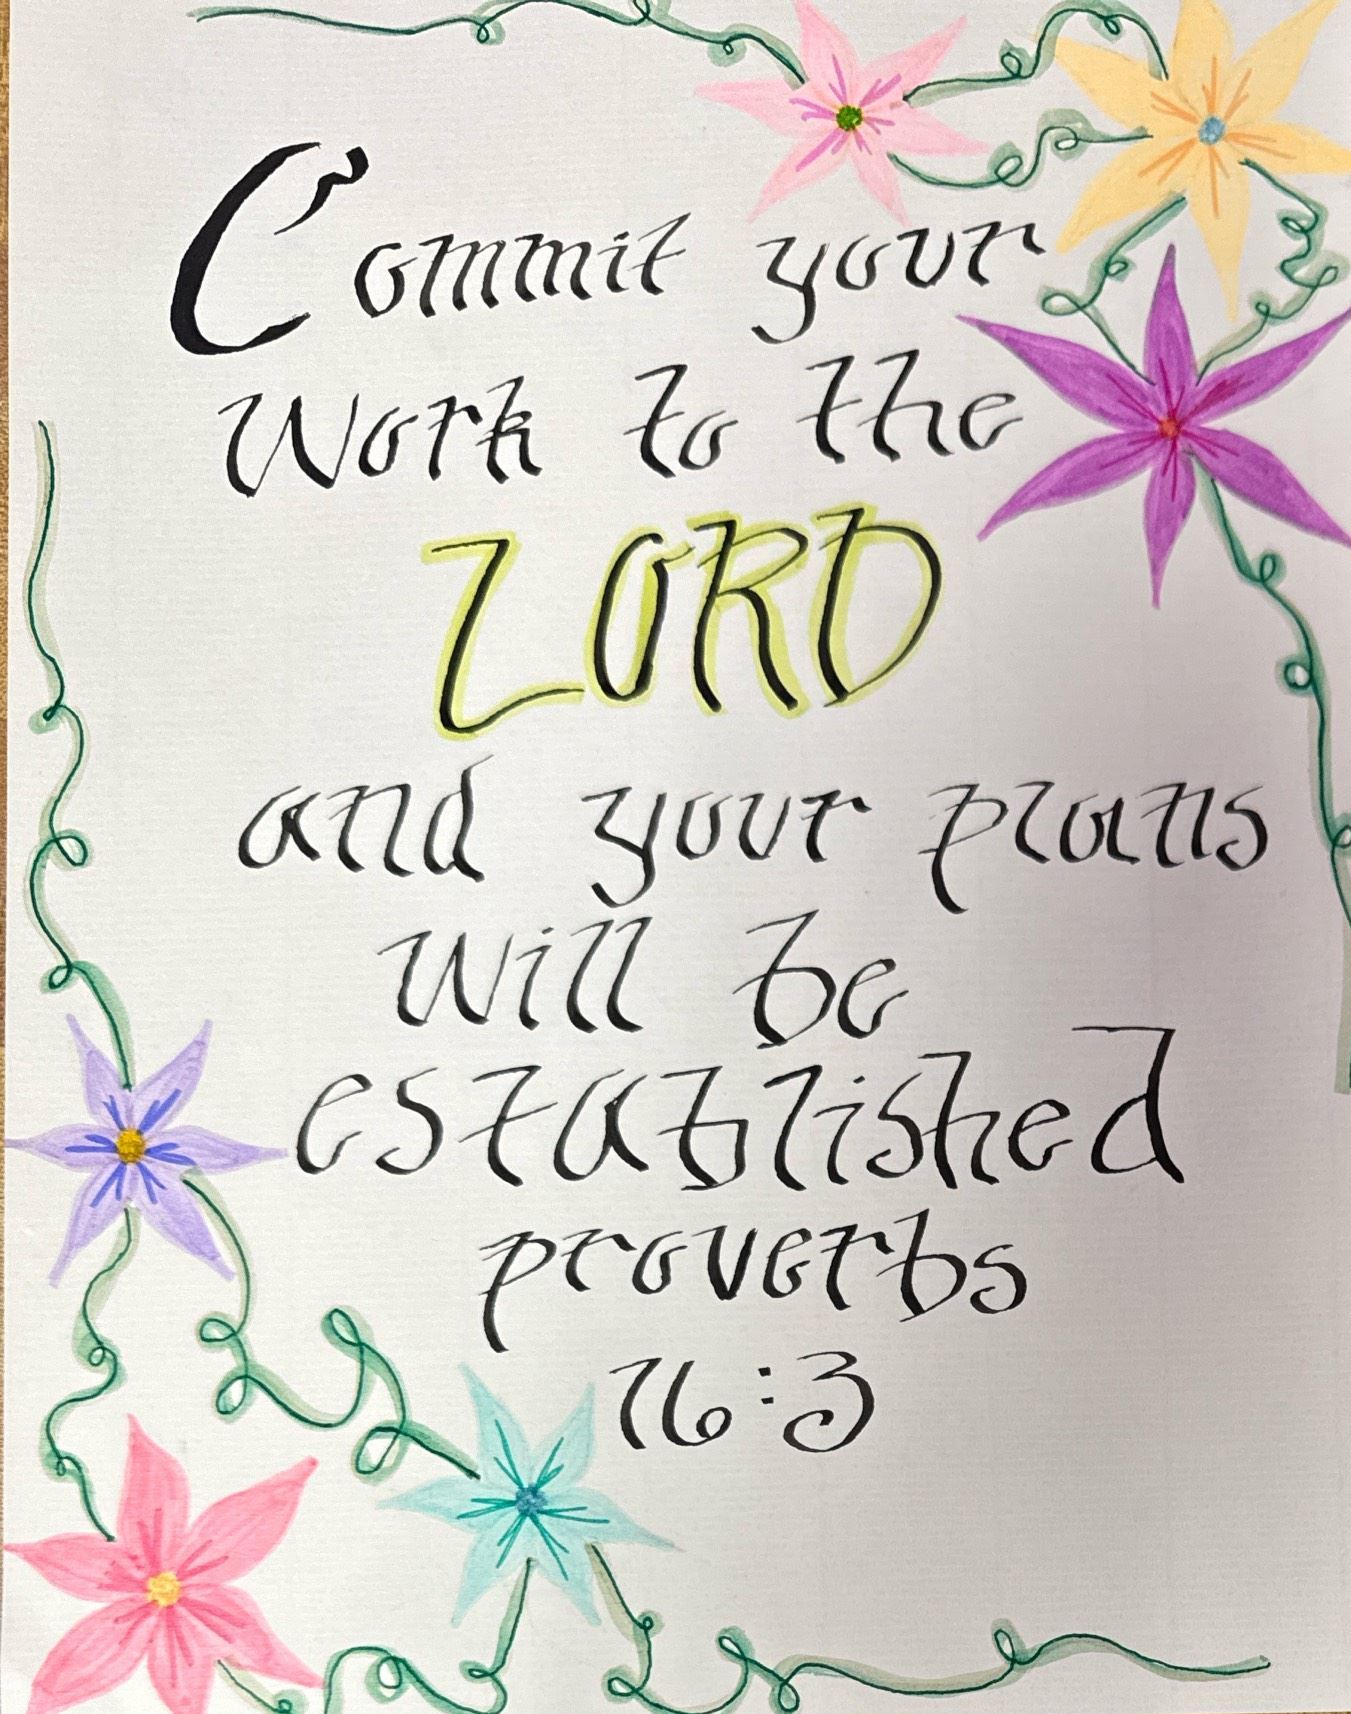 Commit your
Work to the
LORD
and your plans
will be
established
proverbs
16:3